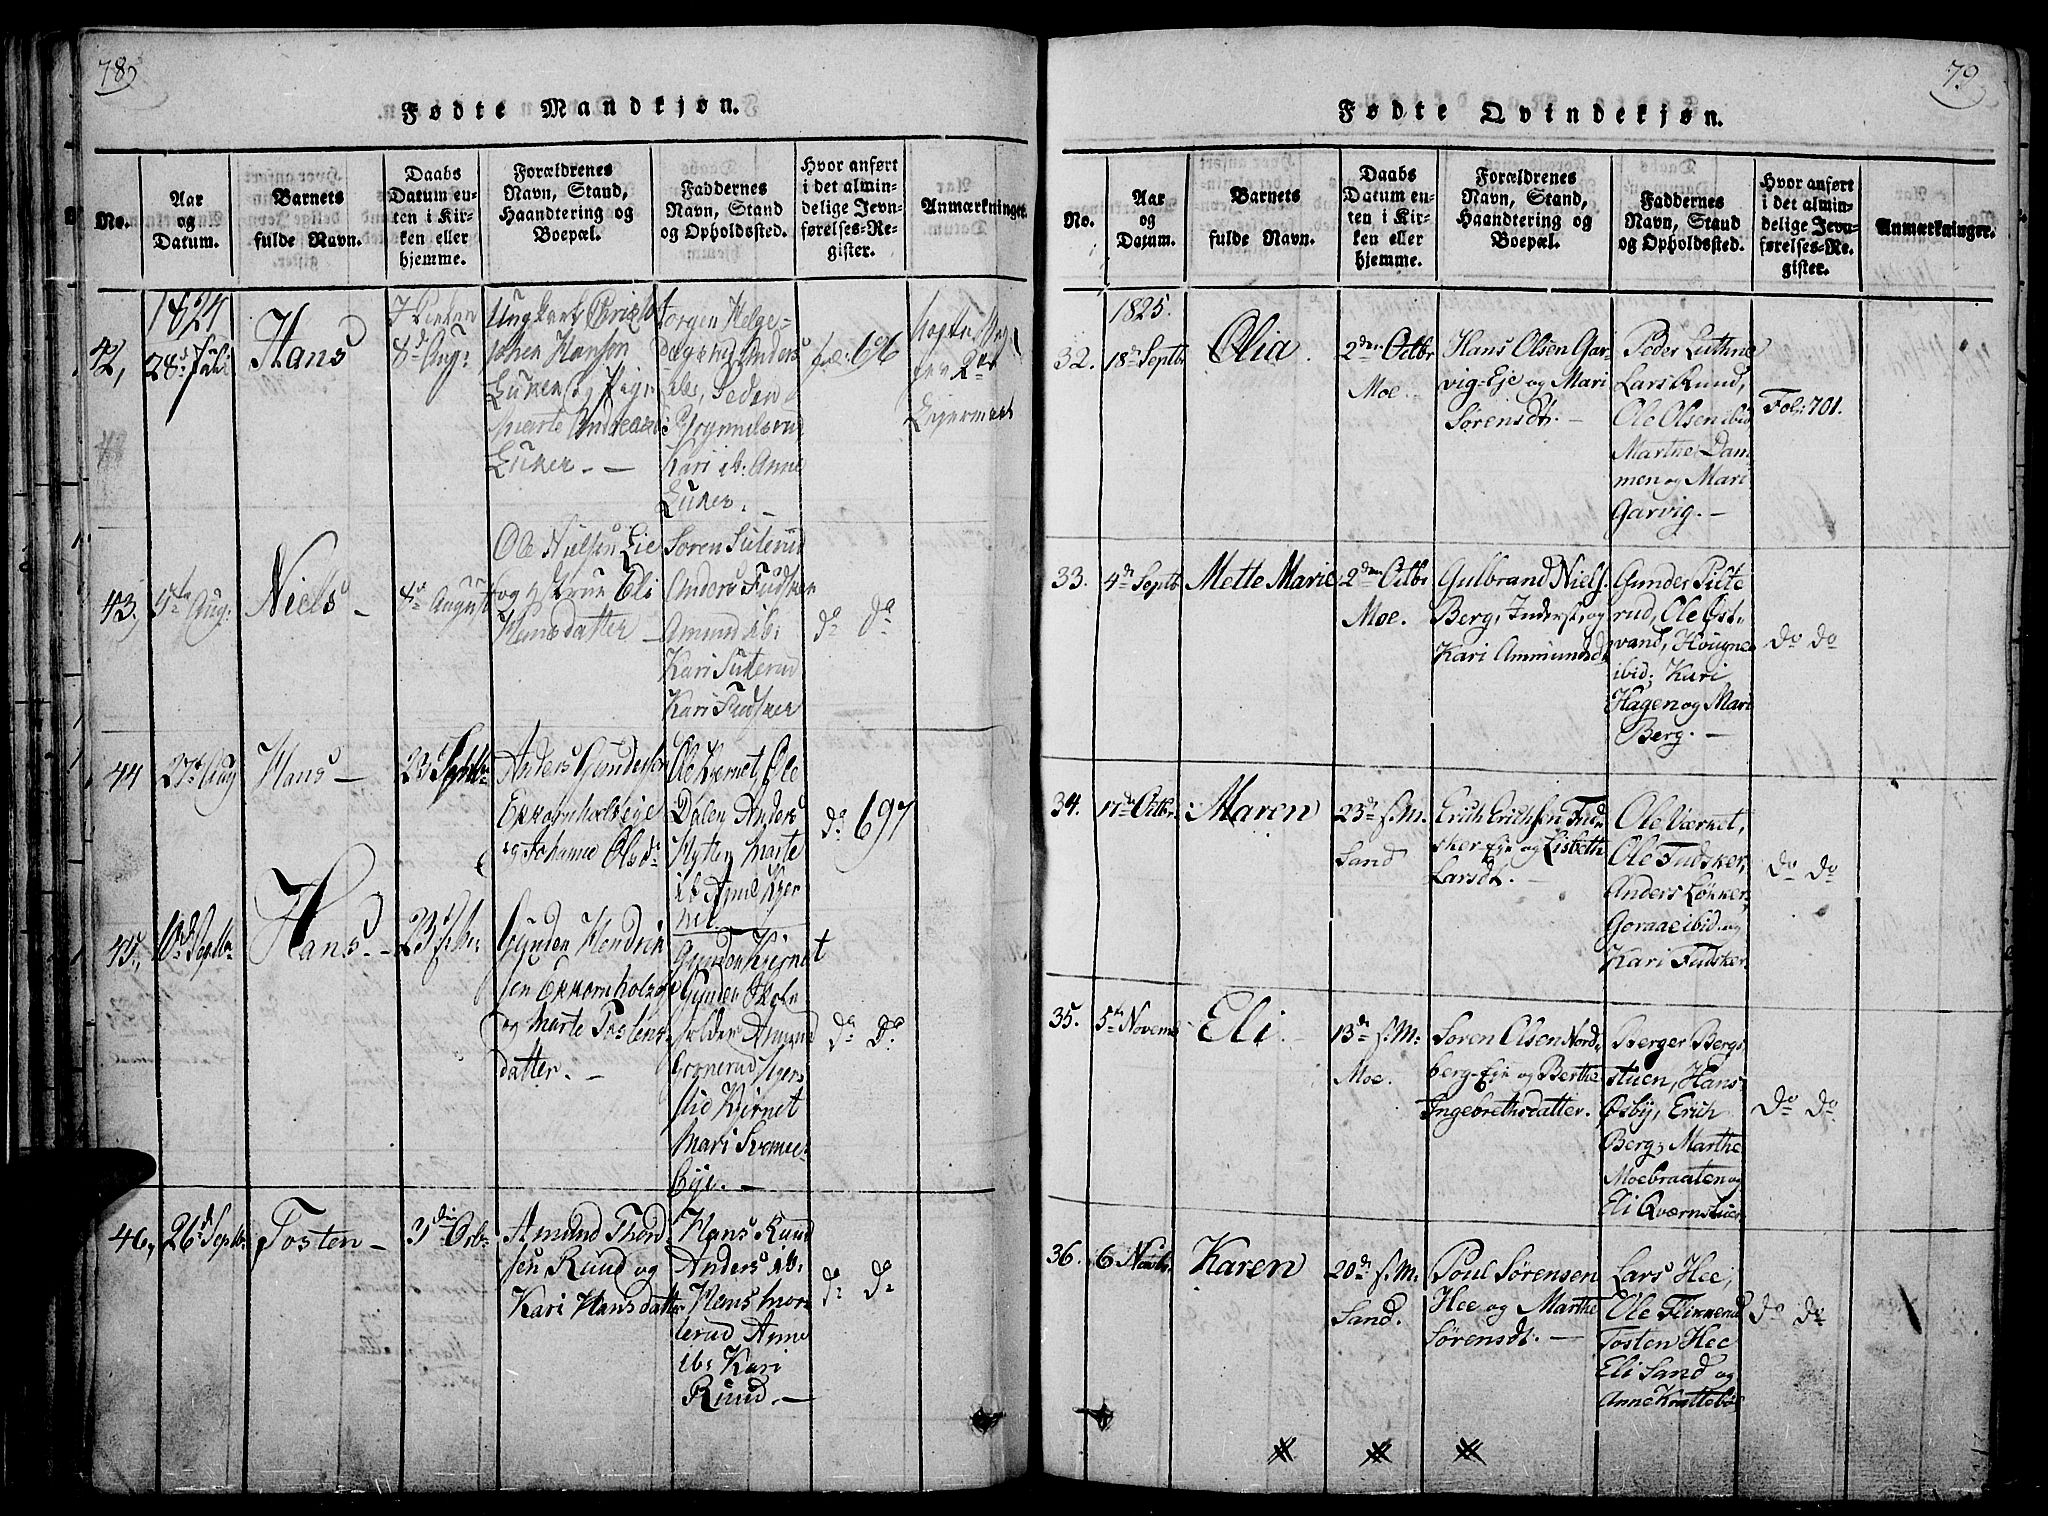 78
Fødte Mandkjøn.
No.
Aar
og
Datum.
Barnets
fulde Navn.
Daabs
Datum en-
ten i Kir-
ken eller
hjemme.
Forældrenes
Navn, Stand,
Haandtering og
Boepæl.
Faddernes
Navn, Stand
og Opholdssted.
Hvor anført
i det almin-
delige Jevn-
førelses-Re-
gister.
Anmærkninger.
1824
42,
28de Juli
Hans
8de Aug:
Ungkarl
Johan Hanson
Euker og Pige
Marte Andreasd:
Euker. —
Kari ib: Anne
Euker. —
696
43,
5te Aug:
Niels —
8de August
Ole Nielsen Lie
og Kone Eli
Hansdatter —
Soren Suterud
Anders Fudsker
Amund ib:
Kari Suterud
Kari Fudsker
do do
44
27de Aug
Hans —
23 Septbr
Anders Gundersen
Ekkornholseje
og Johanne Olsdr
Ole Kiernet, Ole
Dalen Anders
Hytten Marte
ib Anne Kier
net.
do 697
45,
Hans. —
23
Gunder Hendrik
sen Ekkornhols
og Marte Tostens
datter. —
Gunder Kiernet
Gunder
Amund
Kiernet
Mari
do do
46,
26de Septbr
Tosten —
3die Octbr
Amund Thord
sen Ruud og
Kari Hansdatter
Hans Ruud
Anders ib:
Hans Mor
terud Anne
ib: Kari
Ruud. —
do do
79
Fødte Qvindekjøn.
No.
Aar
og
Datum.
Barnets
fulde Navn.
Daabs
Datum en-
ten i Kir-
ken eller
hjemme.
Forældrenes
Navn, Stand,
Haandtering og
Boepæl.
Faddernes
Navn, Stand
og Opholdssted.
Hvor anført
i det almin-
delige Jevn-
førelses-Re-
gister.
Anmærkninger.
1825.
32.
18de Septbr
Olia.
2den Octbr
Moe.
Hans Olsen Gar-
vig-Eje og Mari
Sörensdt. —
Peder Luthne
Lars Rund,
Ole Olsen ibid
Marthe Dam
men og Mari
Garvig. —
Fol: 701.
33.
4de Septb
Mette Marie
2den Octbr
Moe.
Gulbrand Niels.
Berg, Inderst, og
Kari Ammundsd.
Gunder Pilte
rud, Ole Øst-
vand, Hougne
ibid; Kari
Hagen og Mari
Berg. —
do do
34.
17de Octbr.
Maren
23de s. M.
Sand
Erich Erichsen Fud-
sker Eje og Lisbeth
Larsdt. —
Ole Værnet,
Ole Fudsker,
Anders Løkker,
Goraae ibid. og
Kari Fudsker.
do do
35.
5te Novemb
Eli.
13de s. M:
Moe.
Soren Olsen Nord-
berg-Eje og Berthe
Ingebrethsdatter.
Berger Bergs
stuen, Hans
Øsby, Erich
Berg, Marthe
Moebraaten og
Eli Qværnstuen
do do
36.
6 Novbr.
Karen
20de s. M:
Sand.
Poul Sörensen
Hee og Marthe
Sörensdt. —
Lars Hee,
Ole Flikkerud
Tosten Hee
Eli Sand og
Anne Knattebøl
do do